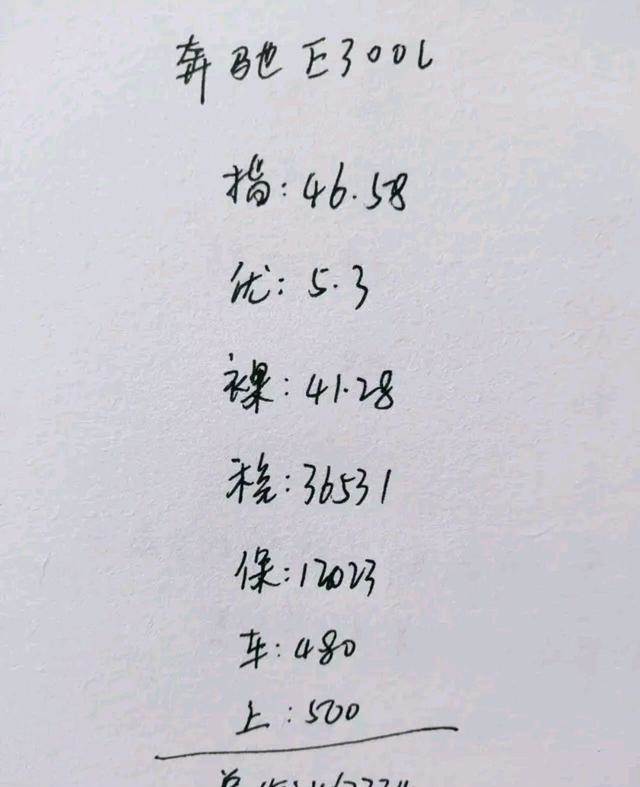 奔驰E300L
指:46.58
优:5.3
裸:41.28
税:36531
保:12023
车:480
上:500